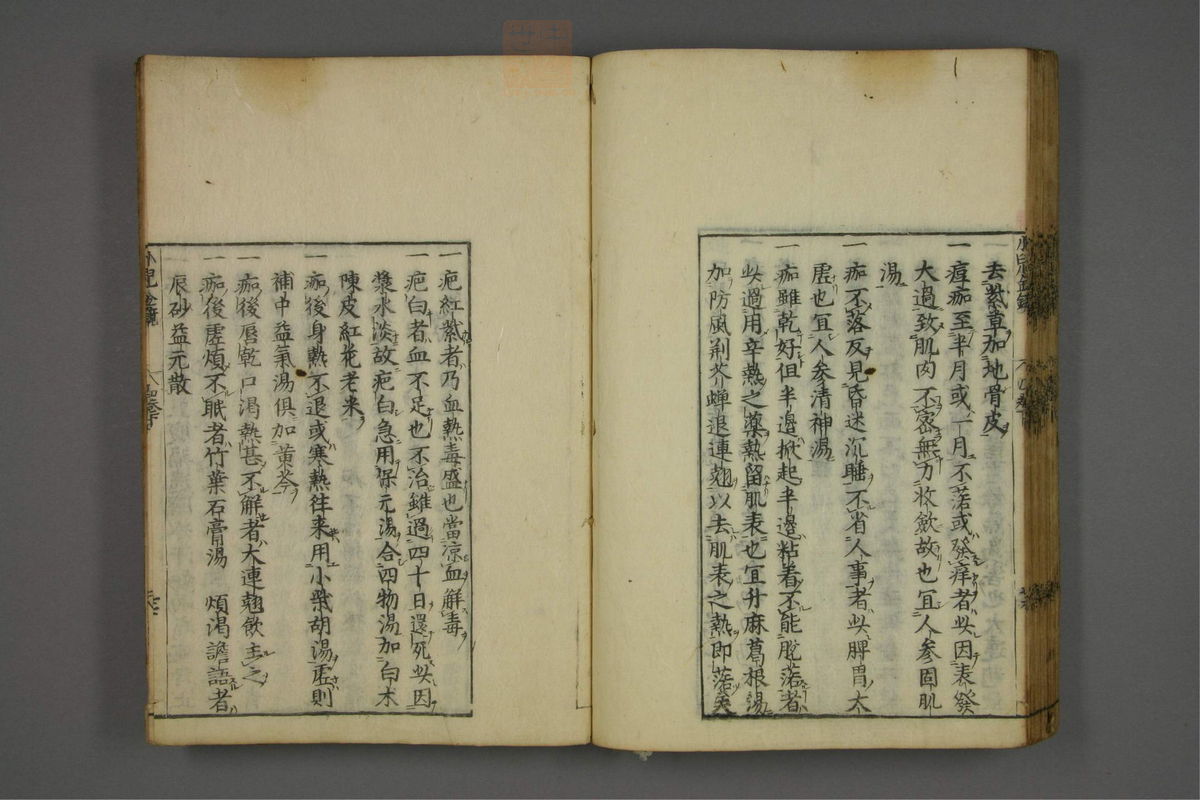 去紫草加地骨皮
一 痘痂至半月或一月不落或發痒者此因表發
大過致肌肉不密無力收斂故也宜人參固肌
湯
一 痂不落反見昏迷沉睡不省人事者此脾胃大
虛也宜人參清神湯
一 痂雖乾好但半邊掀起半邊粘着不能脫落者
此過用辛熱之藥熱留肌表也宜升麻葛根湯
加防風荆芥蟬退連翹以去肌表之熱即落矣
一 疤紅紫者乃血熱毒盛也當凉血解毒
一 疤白者血不足也不治雖過四十日還死此因
漿水淡故疤白急用保元湯合四物湯加白术
陳皮紅花老米
一 痂後身熱不退或寒熱往来用小柴胡湯虛則
補中益氣湯俱加黄芩
一 痂後唇乾口渴熱甚不解者大連翹飲主之
一 痂後虛煩不眠者竹葉石膏湯 煩渴譫語者
辰砂益元散
小兒